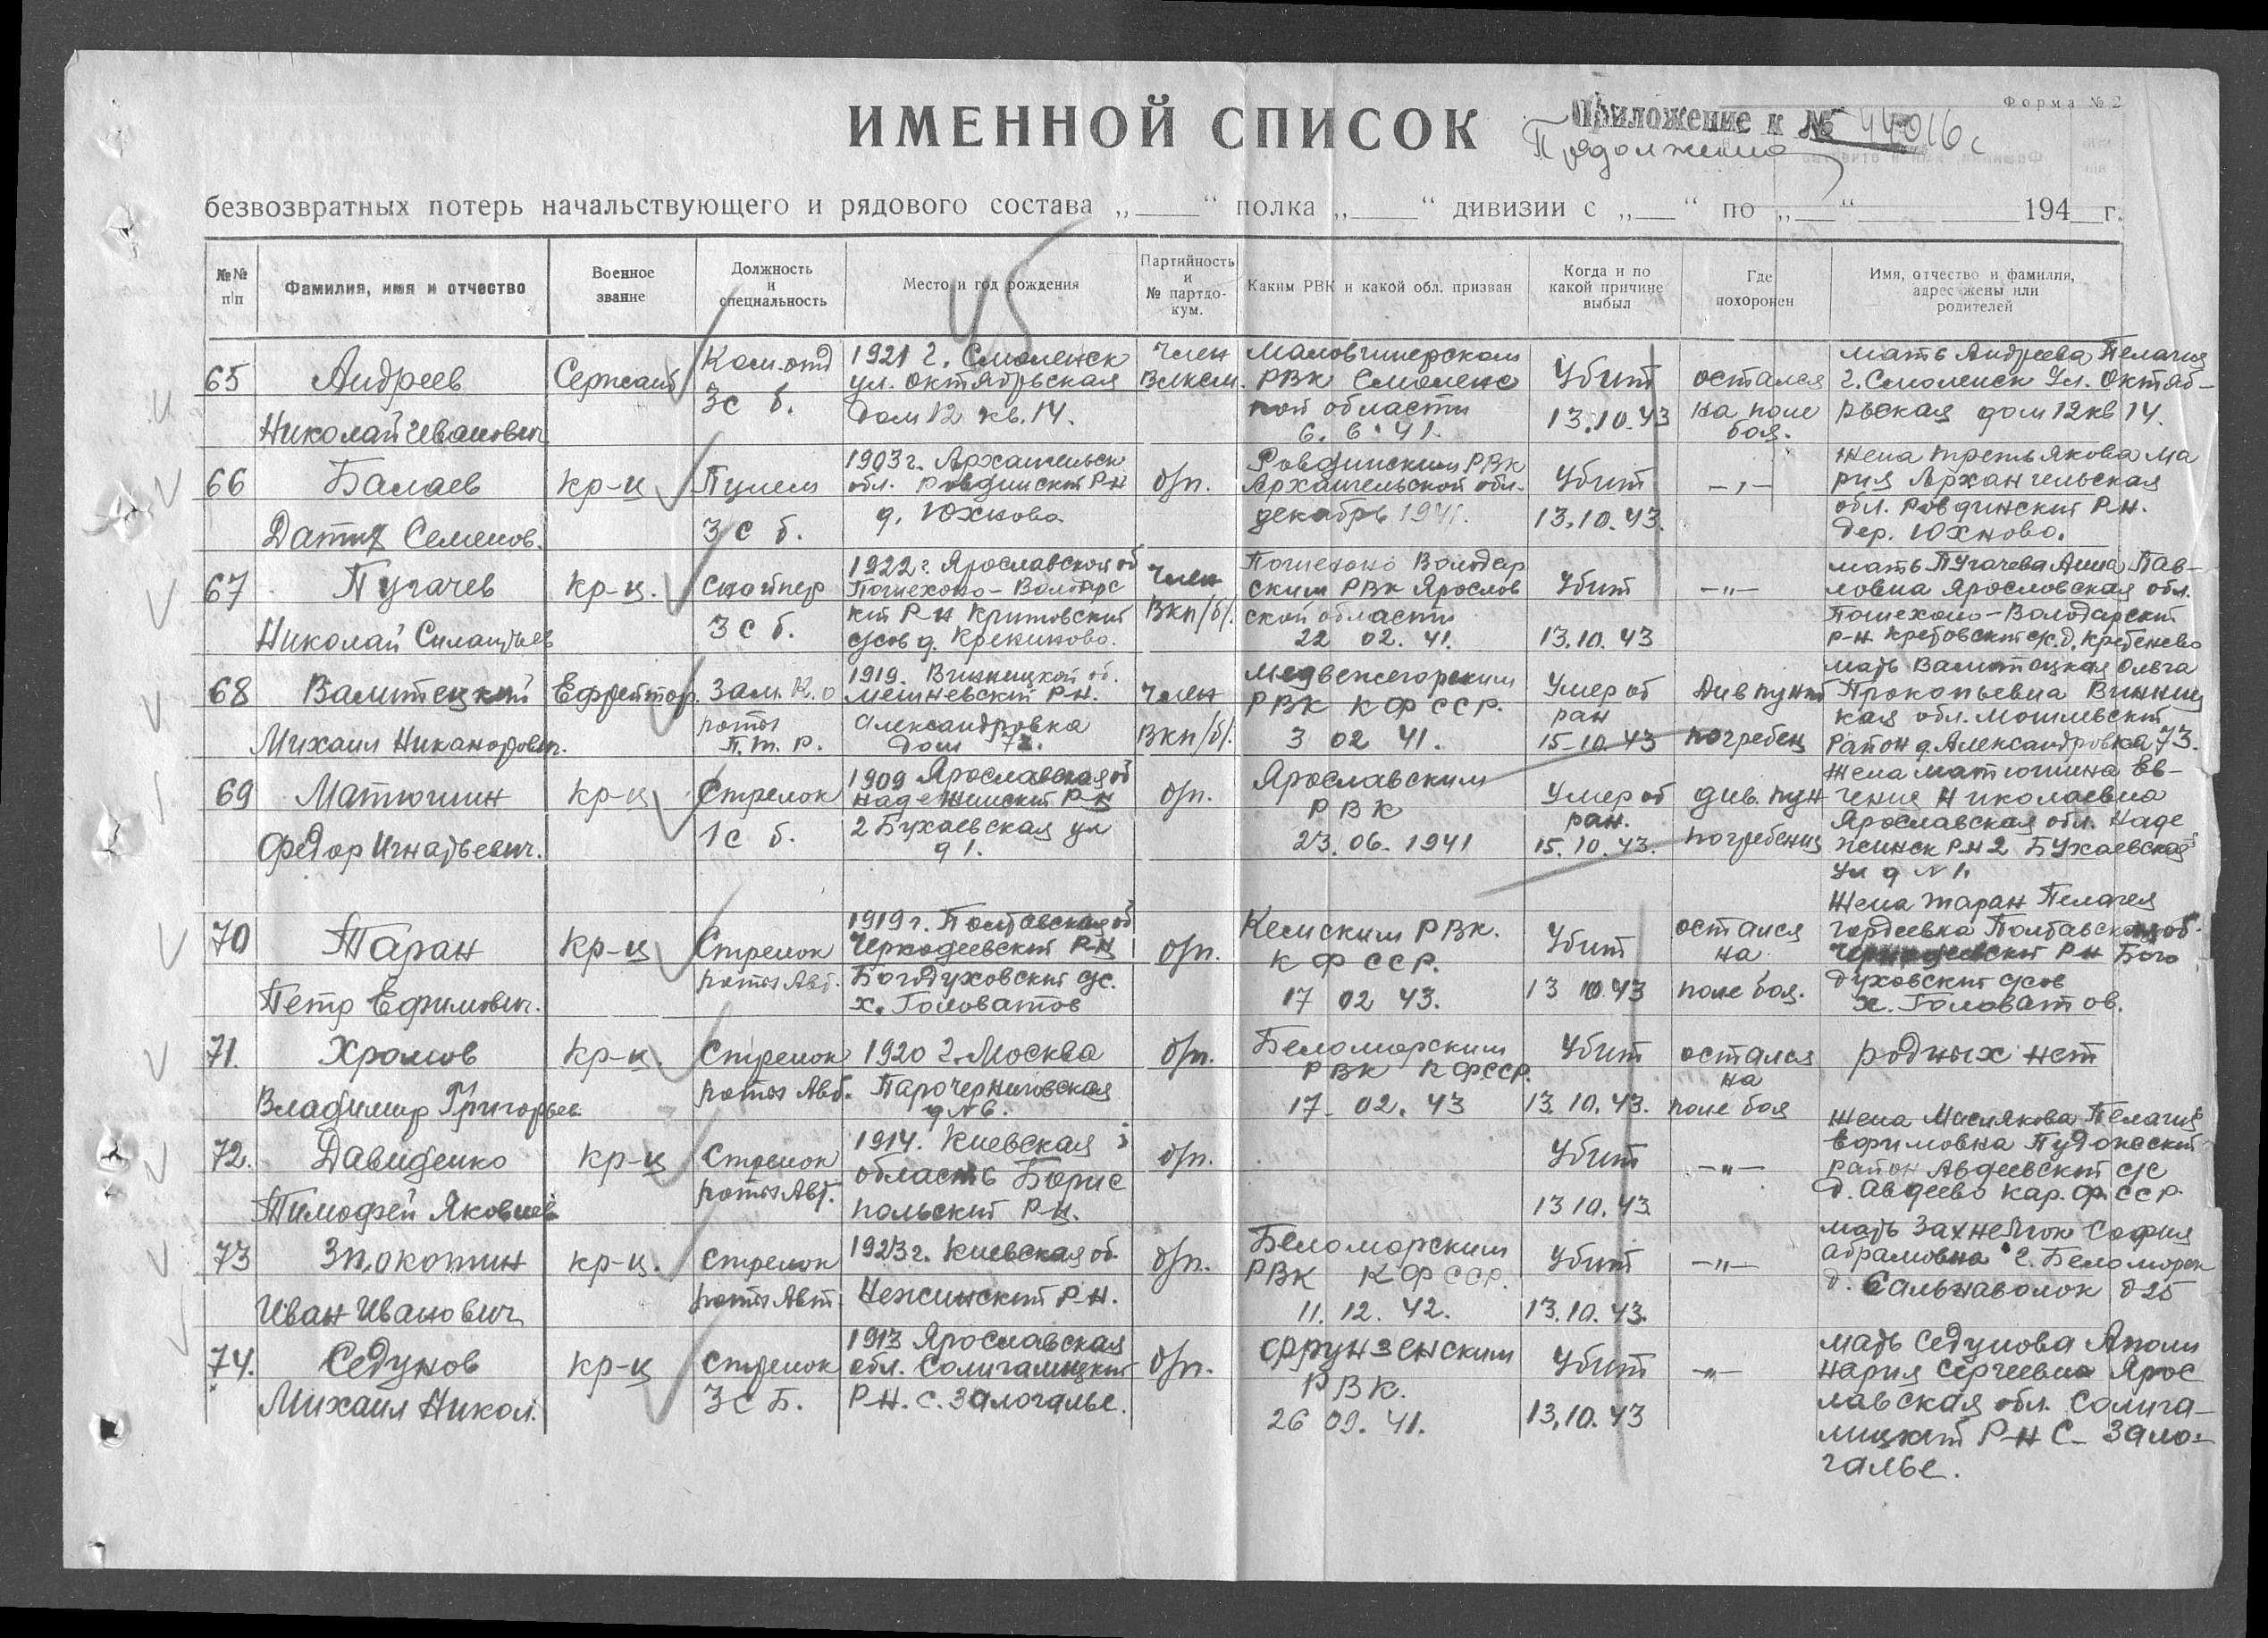 Форма № 2
ИМЕННОЙ СПИСОК
Приложение к № 44016с
Продолжение
безвозвратных потерь начальствующего и рядового состава „____“ полка „____“ дивизии с „___“ по „___“ ________ 194__г.
№№ п/п
Фамилия, имя и отчество
Военное звание
Должность и специальность
Место и год рождения
Партийность и № партдокум.
Каким РВК и какой обл. призван
Когда и по какой причине выбыл
Где похоронен
Имя, отчество и фамилия, адрес жены или родителей
45
65
Андреев
Николай Иванович
Сержант
Ком. отд
3с б.
1921 г. Смоленск
ул. Октябрьская
дом 12 кв. 14.
Член
Влксм.
РВК Смоленс
кой области
6. 6. 41.
Убит
13.10.43
остался
на поле
боя.
мать Андреева Пелагия
г. Смоленск ул. Октяб-
рьская дом 12 кв 14.
66
Балаев
Семенов.
кр-ц
Пулем
3 с б.
1903 г. Архангельск
обл. Ровдинский Р-Н
д. Юхново
б/п.
Ровдинским РВК
Архангельской обл.
декабрь 1941.
Убит
13.10.43.
— „ —
жена Третьякова Ма
рия Архангельская
обл. Ровдинский Р-Н.
дер. Юхново.
67
Пугачев
Николай Силантьев
кр-ц.
Снайпер
3 с б.
1922 г. Ярославской об
Пошехоно-Володарс
кий Р-Н
с/сов д.
Член
ВКП/б/.
Пошехоно Володар
ским РВК Ярослав
ской области
22 02. 41.
Убит
13.10.43
—„—
мать Пугачева Анна Пав-
ловна Ярославская обл.
Пошехоно-Володарский
р-н с/с. д.
68
Михаил Никанорович.
Ефрейтор.
Зам. К.о
роты
П.т.р.
1919. Винницкой об.
Р-Н.
Александровка
дом 73.
Член
ВКП/б/.
Медвежегорским
РВК КФССР.
3 02 41.
Умер от
ран
15-10.43
Див пункт
погребен
мать Ольга
Прокопьевна Винниц
кая обл.
Район д. Александровка 73.
69
Матюшин
Федор Игнатьевич.
кр-ц
Стрелок
1 с б.
1909 Ярославская об
Р-Н
2 Бухаевская ул
д 1.
б/п.
Ярославским
РВК
23.06.1941
Умер от
ран.
15.10.43.
див. пун
погребения
жена Матюшина Ев-
гения Николаевна
Ярославская обл. Наде
жинск Р-Н 2 Бухаевская
ул д № 1.
70
Таран
Петр Ефимович.
кр-ц
Стрелок
роты Авт.
1919 г. Полтавская об
Р-Н
Богодуховский с/с.
х. Головатов
б/п.
Кемским РВК.
КФССР.
17 02 43.
Убит
13 10.43
остался
на
поле боя.
жена Таран Пелагея
Гордеевка Полтавская об.
Р-Н Бого
духовский с/сов
х. Головатов.
71.
Хромов
Владимир Григорьев.
кр-ц.
Стрелок
роты Авт.
1920 г. Москва
д № 6.
б/п.
Беломорским
РВК КФССР.
17- 02. 43
Убит
13.10.43.
остался
на
поле боя
родных нет
72.
Давиденко
Тимофей Яковлев
кр-ц
Стрелок
роты Авт.
1914. Киевская
область Борис
польский Р-Н.
б/п.
Убит
13 10.43
—„—
жена Маслякова Пелагия
Ефимовна Пудожский
район Авдеевский с/с
д. Авдеево Кар.Ф.ССР.
73
Иван Иванович
кр-ц.
Стрелок
роты Авт.
1923 г. Киевская об.
Нежинский Р-Н.
б/п.
Беломорским
РВК КФССР.
11. 12. 42.
Убит
13.10.43.
—„—
мать София
Абрамовна г. Беломорск
д. Сальнаволок д 25
74.
Седунов
Михаил Никол.
кр-ц
Стрелок
3 с б.
1913 Ярославская
обл. Солигалицкий
Р-Н. с. Залогалье.
б/п.
Фрунзенским
РВК.
26 09. 41.
Убит
13.10.43
—„—
мать Седунова Аполи
нария Сергеевна Ярос
лавская обл. Солига-
лицкий Р-Н с- Зало-
галье.